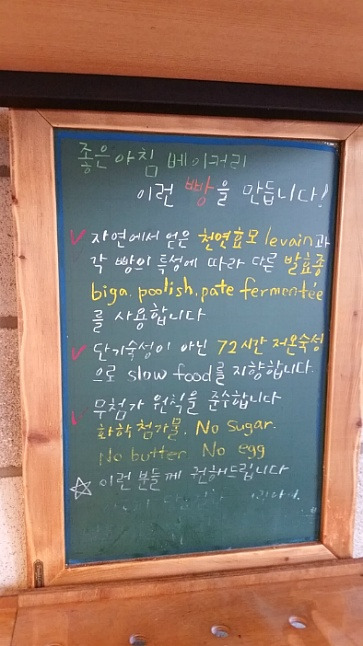 좋은아침 베이커리
이런 빵을 만듭니다!
✓ 자연에서 얻은 천연효모 levain과
각 빵의 특성에 따라 다른 발효종
biga, poolish, pate fermentée
를 사용합니다
✓ 단기숙성이 아닌 72시간 저온숙성
으로 slow food를 지향합니다.
✓ 무첨가 원칙을 준수합니다
화학첨가물, No Sugar.
No butter No egg
☆ 이런 분들께 권해드립니다